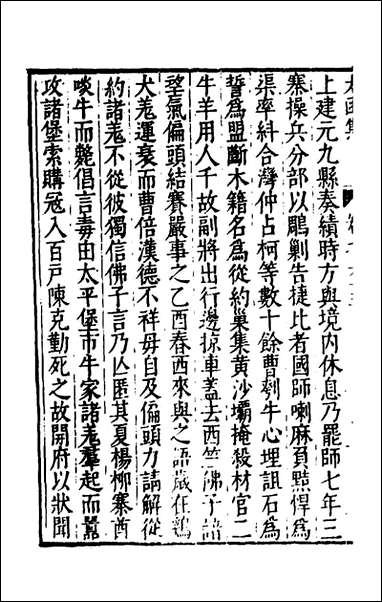 上建元九縣奏績時方與境内休息乃罷師七年三
寨操兵分部以鵰剿告㨗比者國師喇麻頁㸃悍爲
渠率糾合灣仲占柯等數十餘曹刳牛心埋詛石爲
誓爲盟斷木籍名爲從約巢集黄沙壩掩殺材官二
牛羊用人千故副將出行邊掠車蓋去西竺佛子諳
望氣偏頭結賽嚴事之乙酉春西來與之語歲在鶉
犬羗運衰而曹倍漢德不祥毋自及偏頭力請解從
約諸羗不從彼獨信佛子言乃亾匿其夏楊柳寨酋
啖牛而斃倡言毒由太平堡市牛家諸羗羣起而嚣
攻諸堡索購冦入百戸陳克勤死之故開府以狀聞